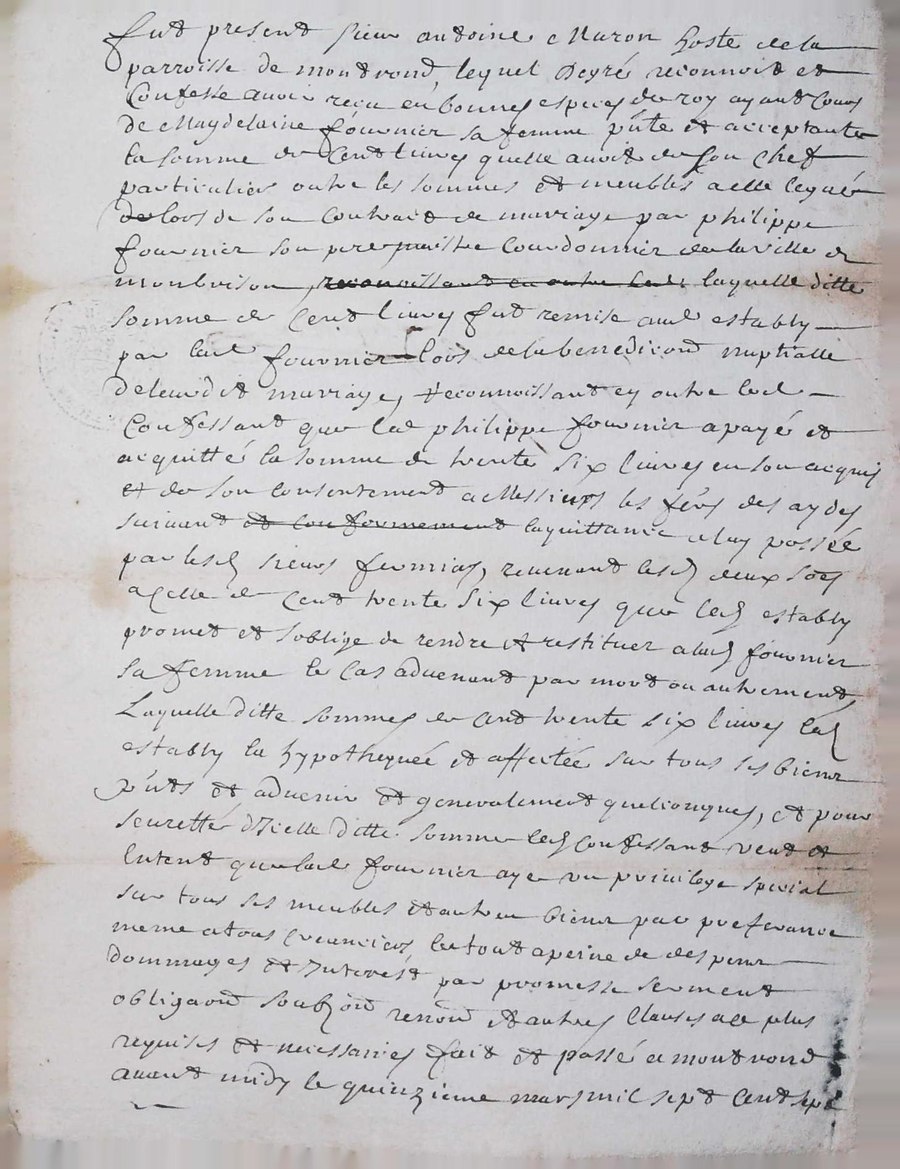 fut present sieur andoine Maron hoste de la
parroisse de montrond, lequel degré reconnoit et
Confesse avoir reçu en bonnes especes du roy ayant cours
de Magdelaine fournier sa femme pnte et acceptante
la somme de Cent livres quelle avoit de son chef
particulier outre les sommes et meubles a elle legué
de lors de son contrait de mariage par philippe
fournier son pere maistre Courdonnier de la ville de
monbrison, reconoissant en outre led laquelle ditte
somme de Cent livres fut remise aud estably
par lad fournier lors de la benediction nuptialle
de leurdit mariage, reconnoissant en outre led
Confessant que led philippe fournier a payé et
acquitté la somme de trente six livres en son acquis
et de son consentement a Messieurs les fers des aydes
suivant et conformement la quittance a luy passée
par lesd sieurs fermiers, revenant lesd deux soes
a celle de Cent trente six livres que led estably
promet et soblige de rendre et restituer a lad fournier
sa femme le cas advenant par mort ou autrement,
Laquelle ditte sommes de cent trente six livres led
estably la hypothequée et affectée sur tous ses biens
pnts et advenir et generalement quelconques, et pour
seuretté dicelle ditte somme led Confessant veut et
Entent que lad fournier aye un privilege special
sur tous ses meubles et autres biens par preferance
meme a tous creanciers le tout a peine de despens
dommages et Interest par promesse serment
obligaon soubzon renon et autres clauses a ce plus
requises et necessaires fait et passé a montrond
avant midy le quinzieme mars mil sept cent sept